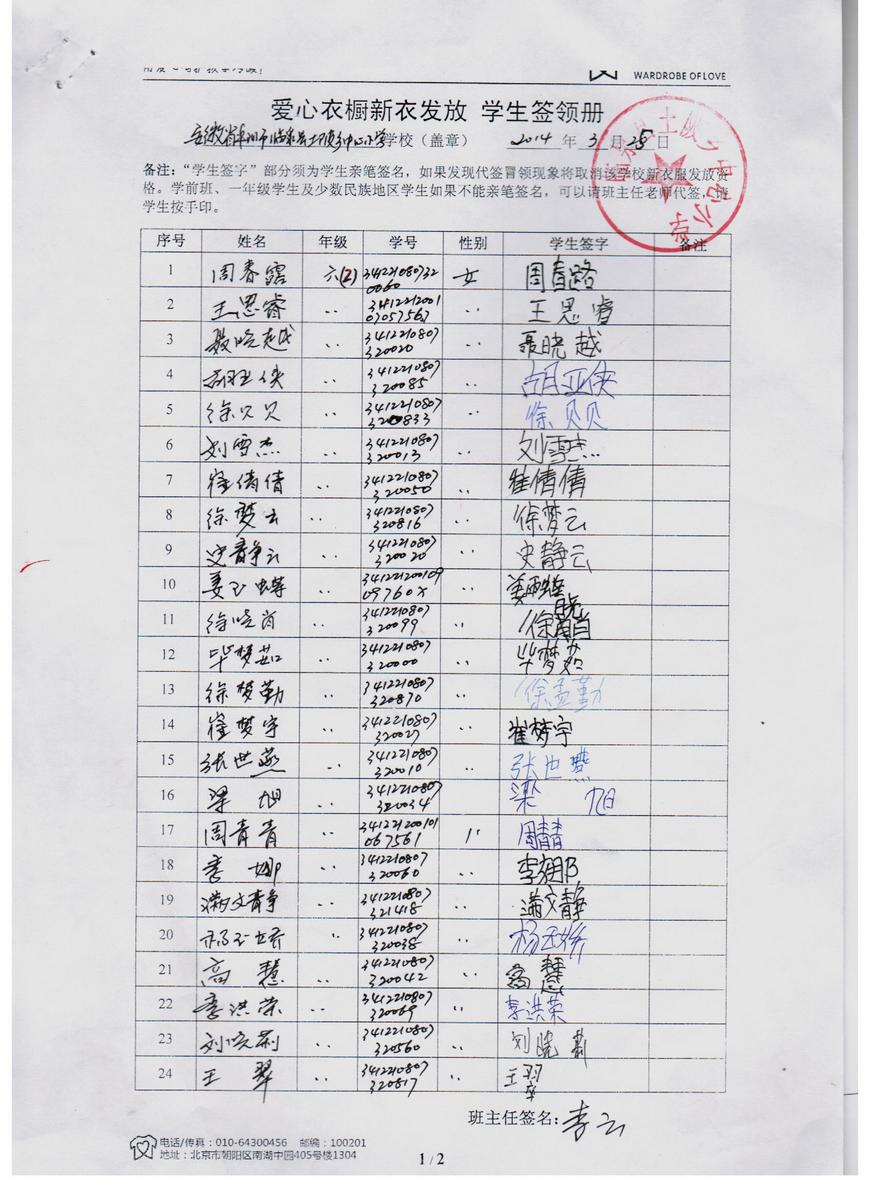 WARDROBE OF LOVE
爱心衣橱新衣发放 学生签领册
学校（盖章） 2014 年 3 月 25 日
备注：“学生签字”部分须为学生亲笔签名，如果发现代签冒领现象将取消该学校新衣服发放资
格。学前班、一年级学生及少数民族地区学生如果不能亲笔签名，可以请班主任老师代签，请
学生按手印。
序号 姓名 年级 学号 性别 学生签字 备注
1 周春露 六(2) 3412210807320060 女 周春路
2 王思睿 .. 341221200107057567 .. 王思睿
3 聂晓越 .. 3412210807320020 .. 聂晓越
4 胡亚侠 .. 3412210807320085 .. 胡亚侠
5 徐贝贝 .. 3412210807320833 .. 徐贝贝
6 刘雪杰 .. 3412210807320013 .. 刘雪杰
7 崔倩倩 .. 3412210807320050 .. 崔倩倩
8 徐梦云 .. 3412210807320816 .. 徐梦云
9 史静云 .. 3412210807320020 .. 史静云
10 姜 .. 34122120010909760X .. 姜
11 徐晓肖 .. 3412210807320099 .. 徐晓肖
12 毕梦茹 .. 3412210807320000 .. 毕梦茹
13 徐梦勤 .. 3412210807320870 .. 徐孟勤
14 崔梦宇 .. 3412210807320027 .. 崔梦宇
15 张世燕 .. 3412210807320010 .. 张世燕
16 梁旭 .. 3412210807320034 .. 梁旭
17 周青青 .. 341221200101067561 .. 周青青
18 李娜 .. 3412210807320060 .. 李娜
19 满文静 .. 3412210807321418 .. 满文静
20 杨玉娇 .. 3412210807320038 .. 杨玉娇
21 高慧 .. 3412210807320042 .. 高慧
22 李洪荣 .. 3412210807320069 .. 李洪荣
23 刘晓莉 .. 3412210807320560 .. 刘晓莉
24 王翠 .. 3412210807320817 .. 王翠
班主任签名：李云
电话/传真：010-64300456 邮编：100201
地址：北京市朝阳区南湖中园405号楼1304
1 / 2